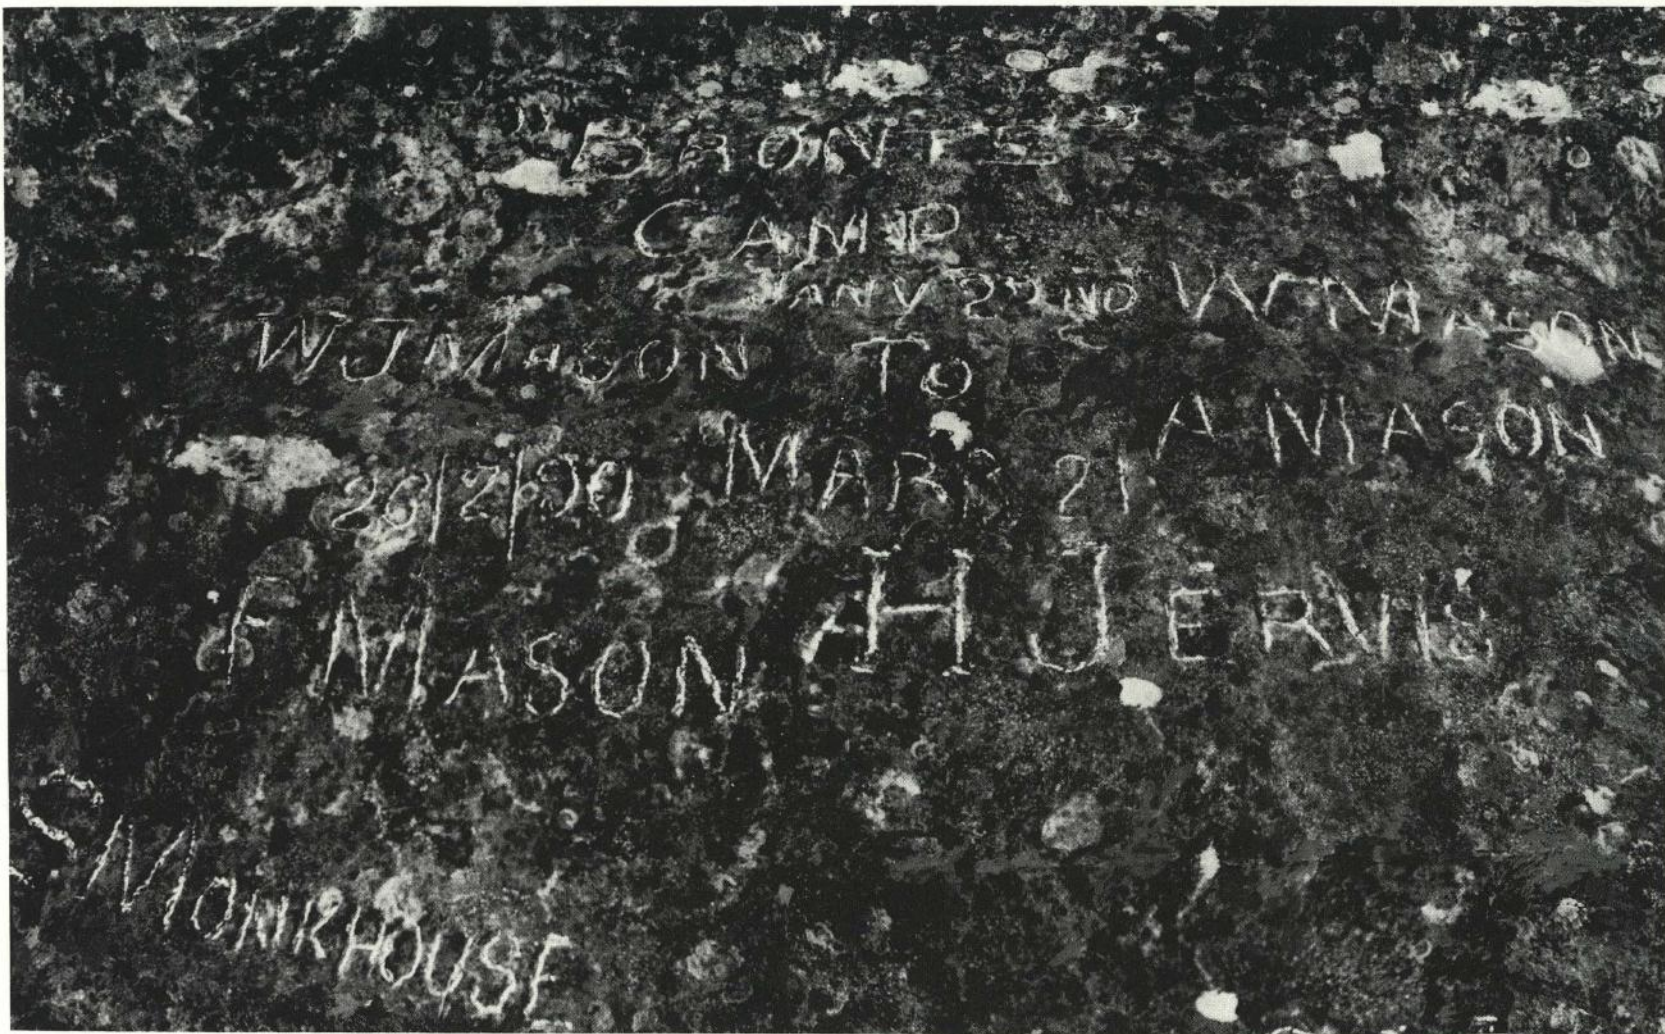 "BRONTES"
CAMP
JANY 22ND
WJ MASON TO
A MASON
MAR 21
F MASON
H JERVIS
S MONKHOUSE